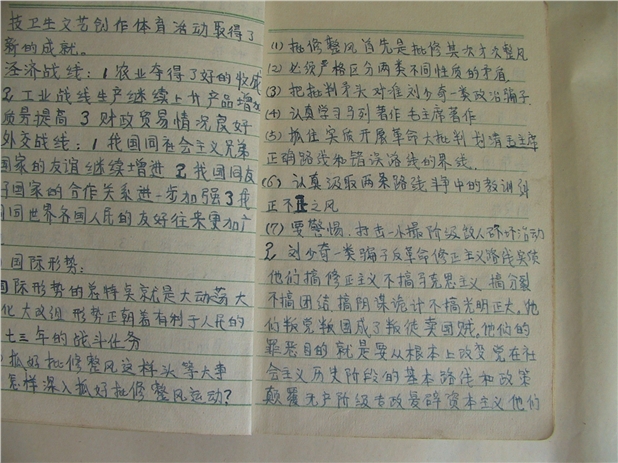 技卫生文艺创作体育活动取得了
新的成就。
泾济战线：1 农业夺得了好的收成
2 工业战线生产继续上升产品增加
质昜提高 3 财政贸易情况良好
外交战线：1 我国同社会主义兄弟
国家的友谊继续增进 2 我国同友
好国家的合作关系进一步加强 3 我
国同世界各国人民的友好往来更加广
国际形势：
国际形势的总特点就是大动荡大
化大改组 形势正朝着有利于人民的
七三年的战斗任务
抓好批修整风这样头等大事
怎样深入抓好批修整风运动？
(1) 批修整风首先是批修其次才是整风
(2) 必须严格区分两类不同性质的矛盾
(3) 把批判矛头对准刘少奇一类政治骗子
(4) 认真学习马列著作毛主席著作
(5) 抓住实质开展革命大批判 划清毛主席
正确路线和错误路线的界线
(6) 认真汲取两条路线斗争中的教训纠
正不正之风
(7) 要警惕、打击一小撮阶级敌人破坏活动
2 刘少奇一类骗子反革命修正主义路线实质
他们搞修正主义不搞马克思主义 搞分裂
不搞团结 搞阴谋诡计不搞光明正大，他
们叛党叛国成了叛徒卖国贼，他们的
罪恶目的就是要从根本上改变党在社
会主义历史阶段的基本路线和政策
颠覆无产阶级专政复辟资本主义 他们